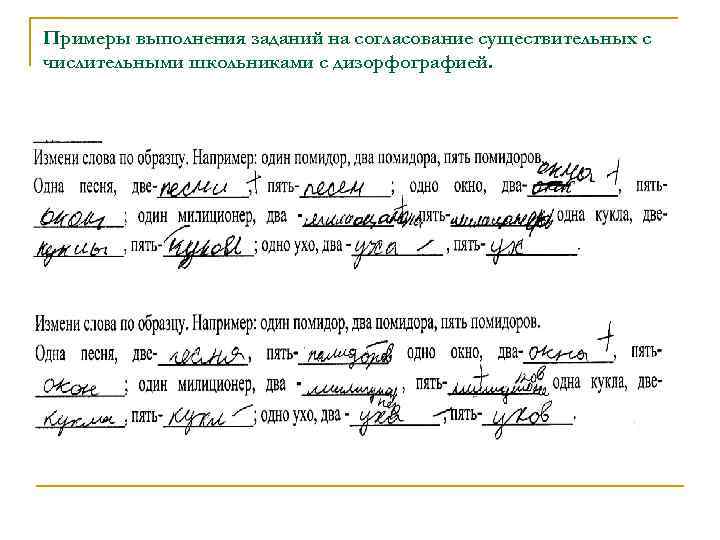 Примеры выполнения заданий на согласование существительных с
числительными школьниками с дизорфографией.
Измени слова по образцу. Например: один помидор, два помидора, пять помидоров.
окна +
Одна песня, две- песни +, пять- песен ; одно окно, два- , пять-
окон ; один милиционер, два - пять- одна кукла, две-
, пять- ; одно ухо, два - уха – , пять- ух .
Измени слова по образцу. Например: один помидор, два помидора, пять помидоров.
Одна песня, две- песня, пять- помидоров одно окно, два- окна +, пять-
окон ; один милиционер, два - , пять- одна кукла, две-
кукла, пять- кукл – ; одно ухо, два - уха – , пять- ухов .